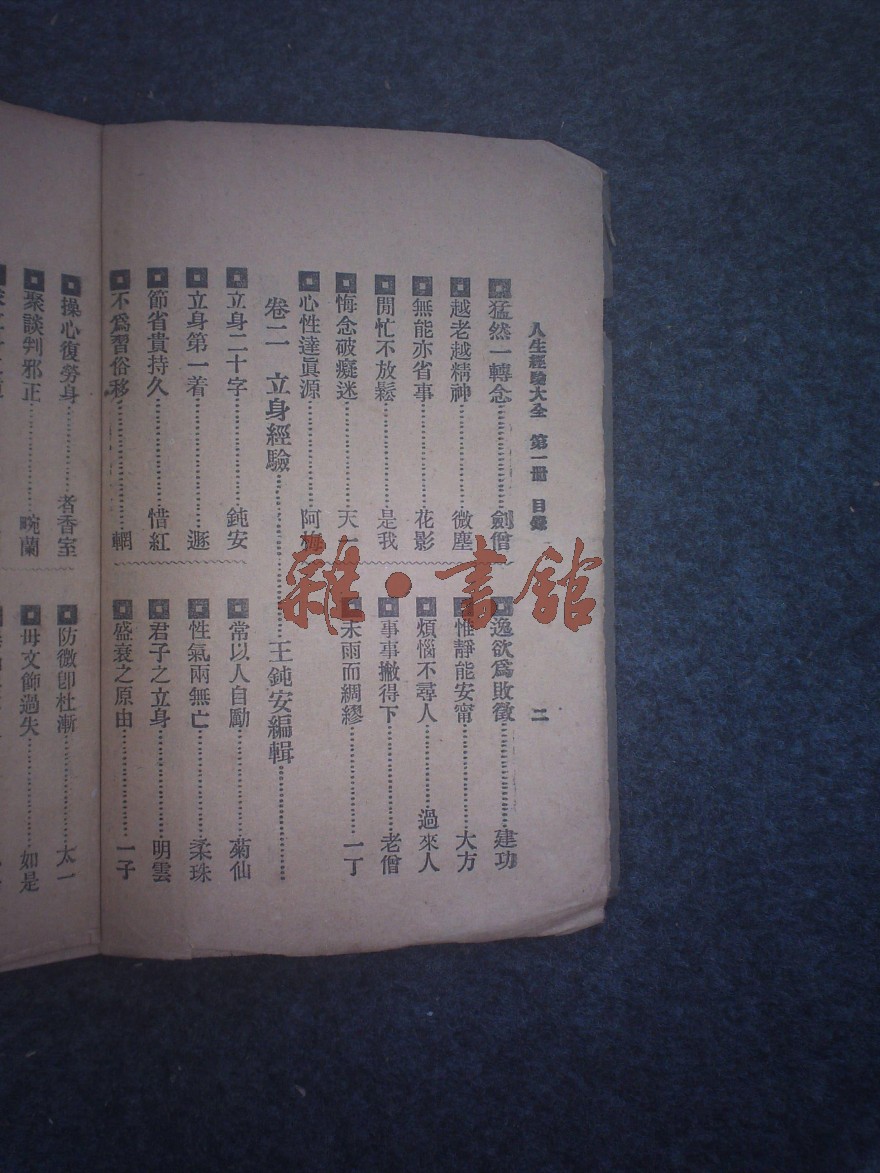 人生經驗大全 第一冊 目錄 二
猛然一轉念 劍僧
越老越精神 微塵
無能亦省事 花影
閒忙不放鬆 是我
悔念破癡迷 天一
心性達眞源 阿梅
逸欲爲敗徵 建功
惟靜能安甯 大方
煩惱不尋人 過來人
事事撇得下 老僧
未雨而綢繆 一丁
卷二 立身經驗 王鈍安編輯
立身二十字 鈍安
立身第一着
節省貴持久 惜紅
不爲習俗移 輞
常以人自勵 菊仙
性氣兩無亡 柔珠
君子之立身 明雲
盛衰之原由 一子
操心復勞身 者香室
聚談判邪正 畹蘭
防微卽杜漸 太一
毋文飾過失 如是
雜·書館